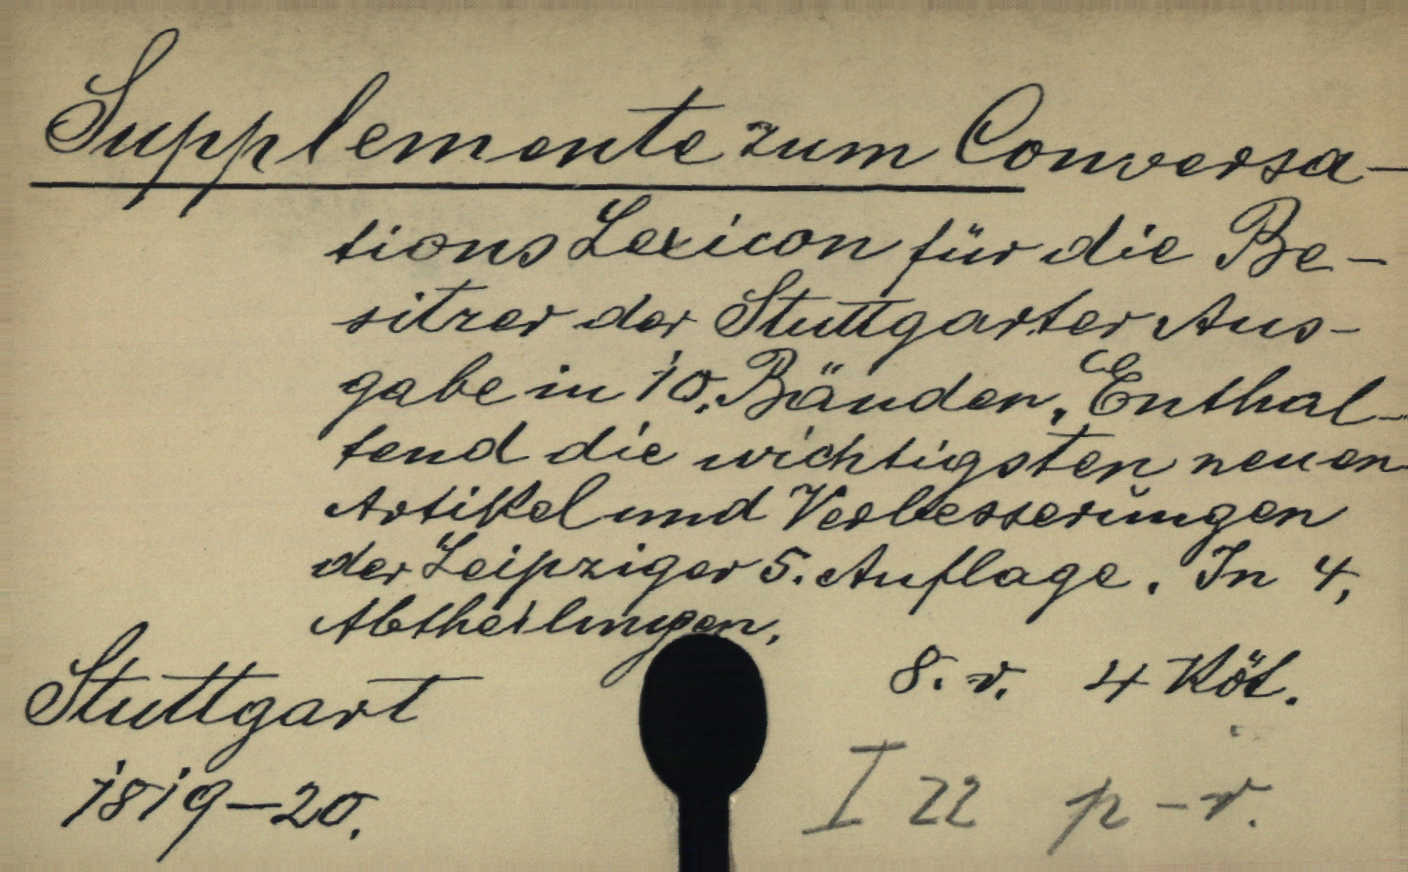 Supplemente zum Conversa-
tions Lexicon für die Be-
sitzer der Stuttgarter Aus-
gabe in 10. Bänden. Enthal-
tend die wichtigsten neuen
Artikel und Verbesserungen
der Leipziger 5. Auflage. In 4,
Abtheilungen.
Stuttgart
8. r. 4 Köt.
1819-20.
I 22 p-r.